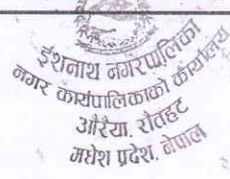 ईशनाथ नगरपालिका
नगर कार्यपालिकाको कार्यालय
औरैया, रौतहट
मधेश प्रदेश, नेपाल